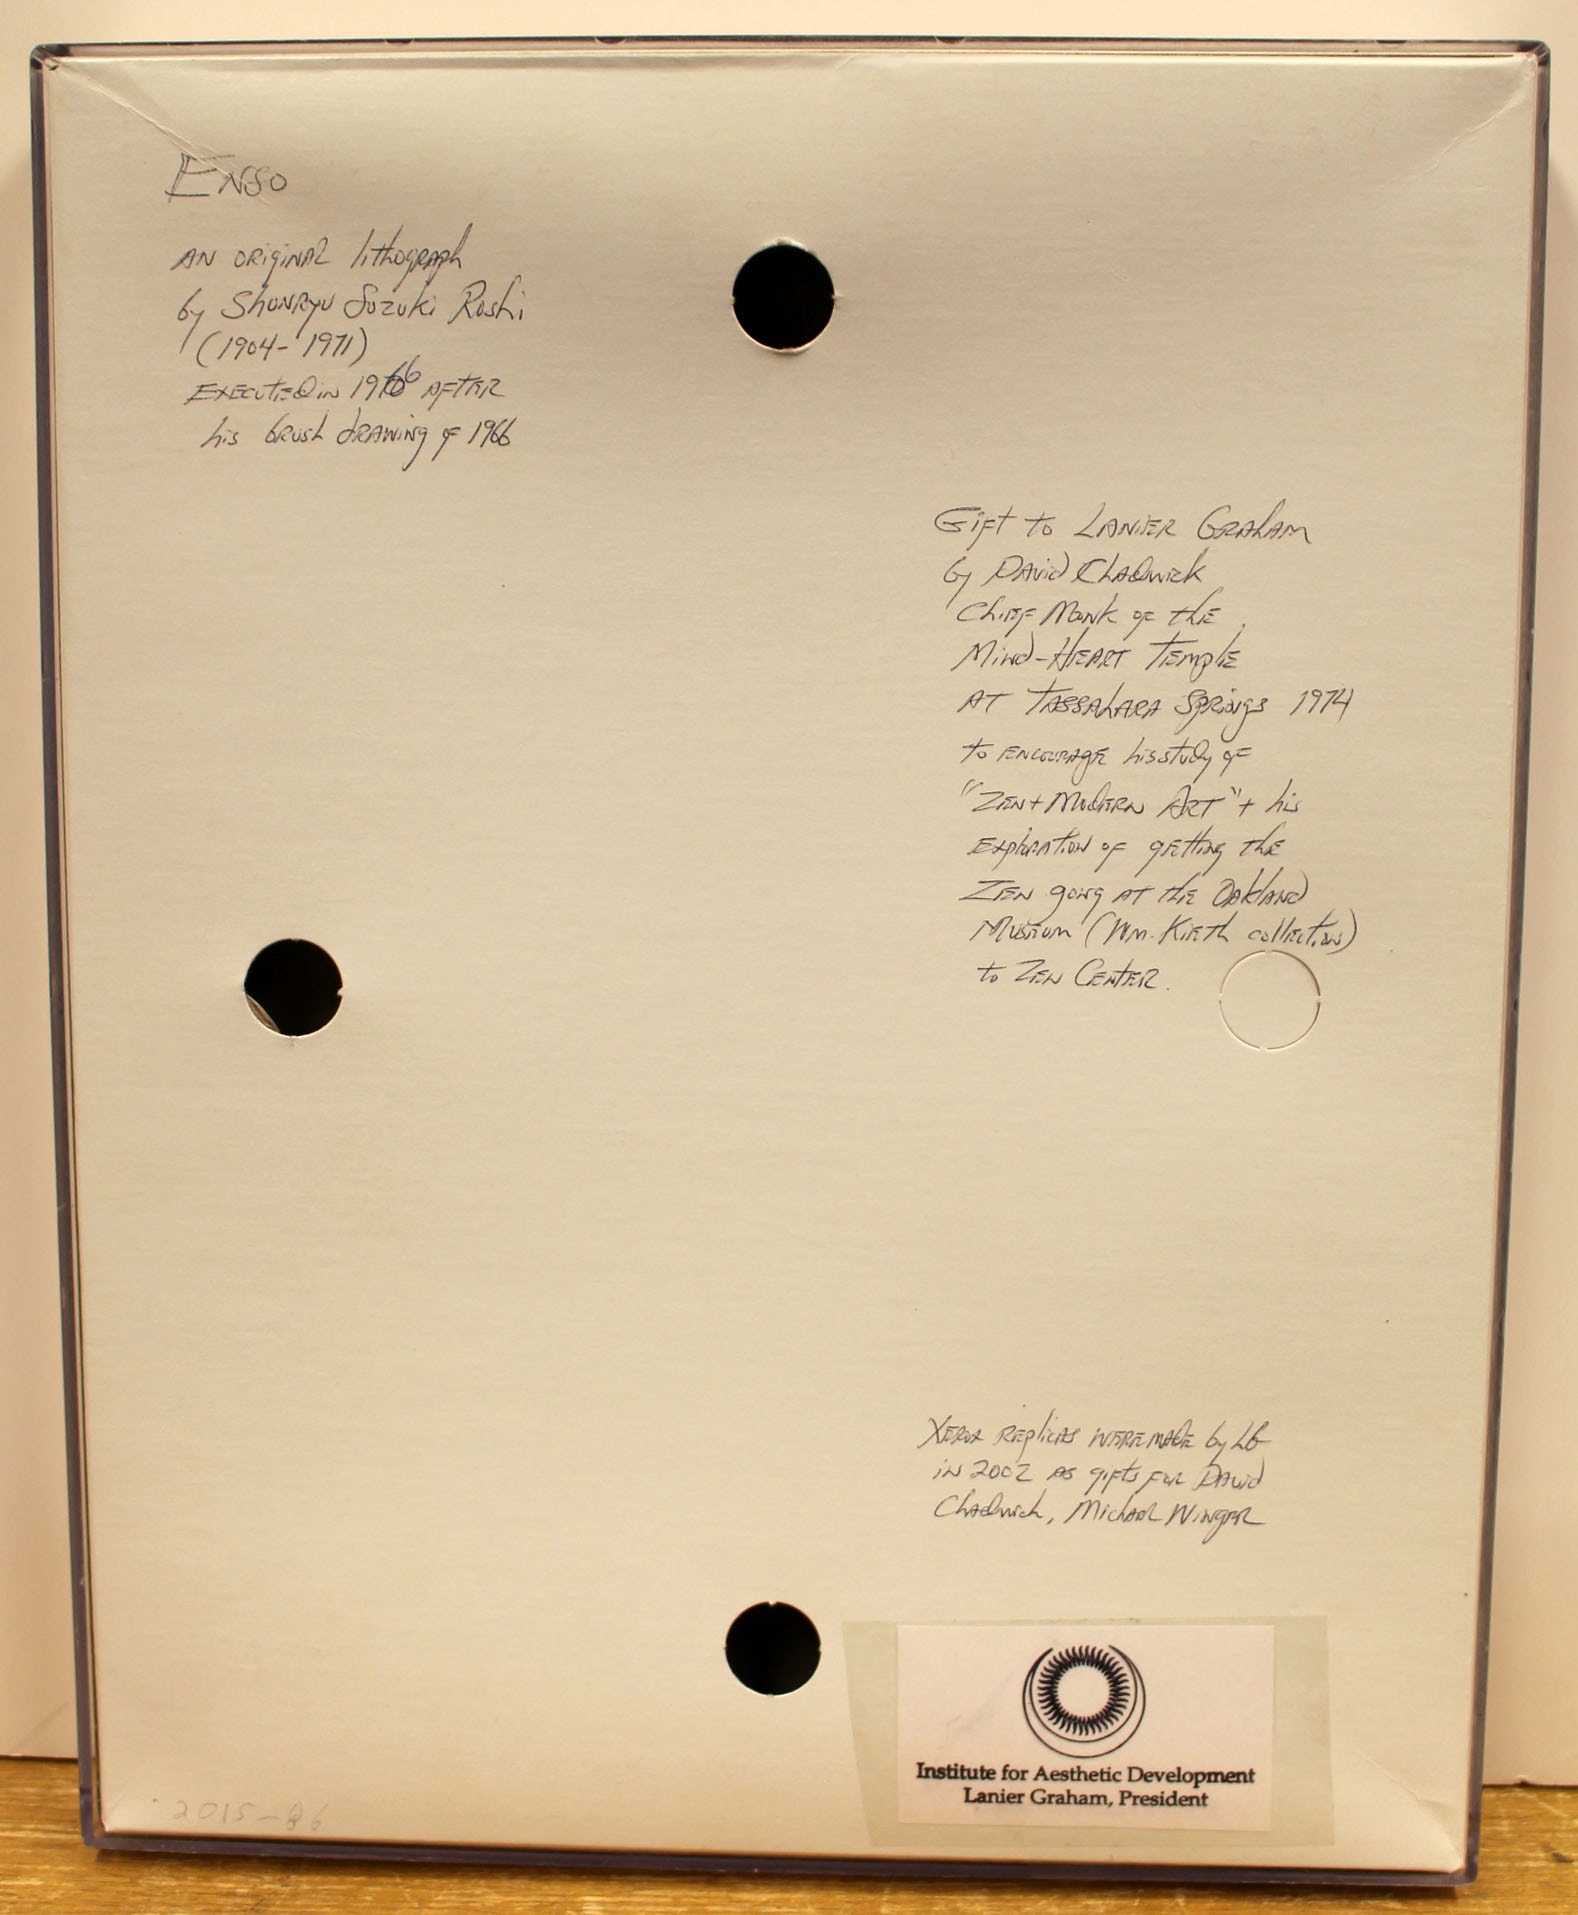 Enso
AN ORIGINAL lithograph
by Shunryu Suzuki Roshi
(1904-1971)
EXECUTED in 1966 AFTER
his brush drawing of 1966
Gift to LANIER GRAHAM
by David Chadwick
Chief Monk of the
Mind-Heart Temple
AT TASSAHARA Springs 1974
to encourage his study of
"Zen + Modern Art" + his
exploration of getting the
Zen gong at the Oakland
Museum (Wm. Kieth collection)
to Zen Center.
Xerox replicas were made by LG
in 2002 as gifts for David
Chadwick, Michael Winger
Institute for Aesthetic Development
Lanier Graham, President
2015-86